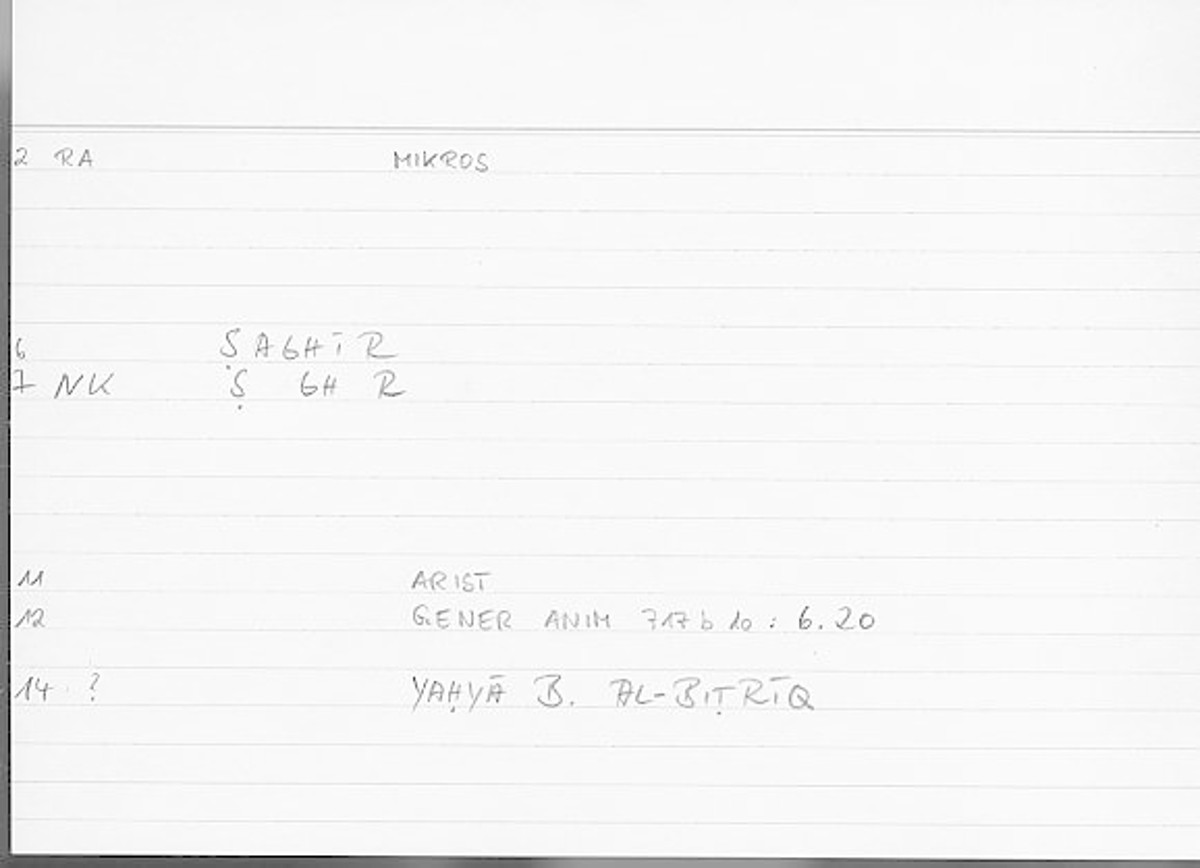 2 RA MIKROS
6 ṢAGHĪR
7 NK Ṣ GH R
11 ARIST
12 GENER ANIM 717 b 10 : 6.20
14 ? YAḤYĀ B. AL-BIṬRĪQ